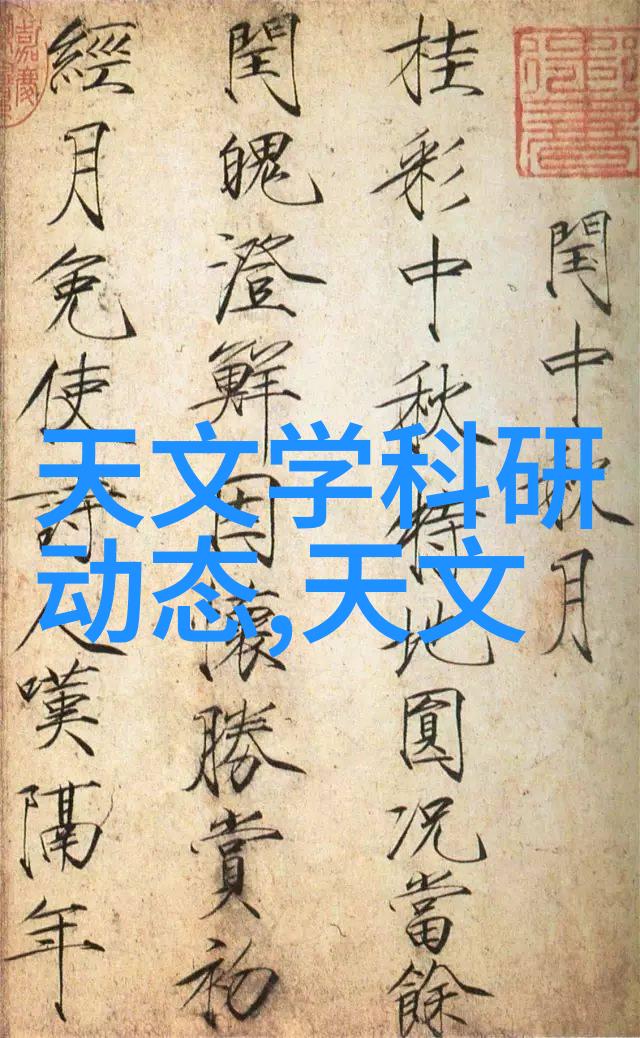 閏中秋月
桂彩中秋特地圓況當餘
閏魄澄鮮因懷勝賞初
經月免使詩人嘆隔年
天文学科研
动态,天文